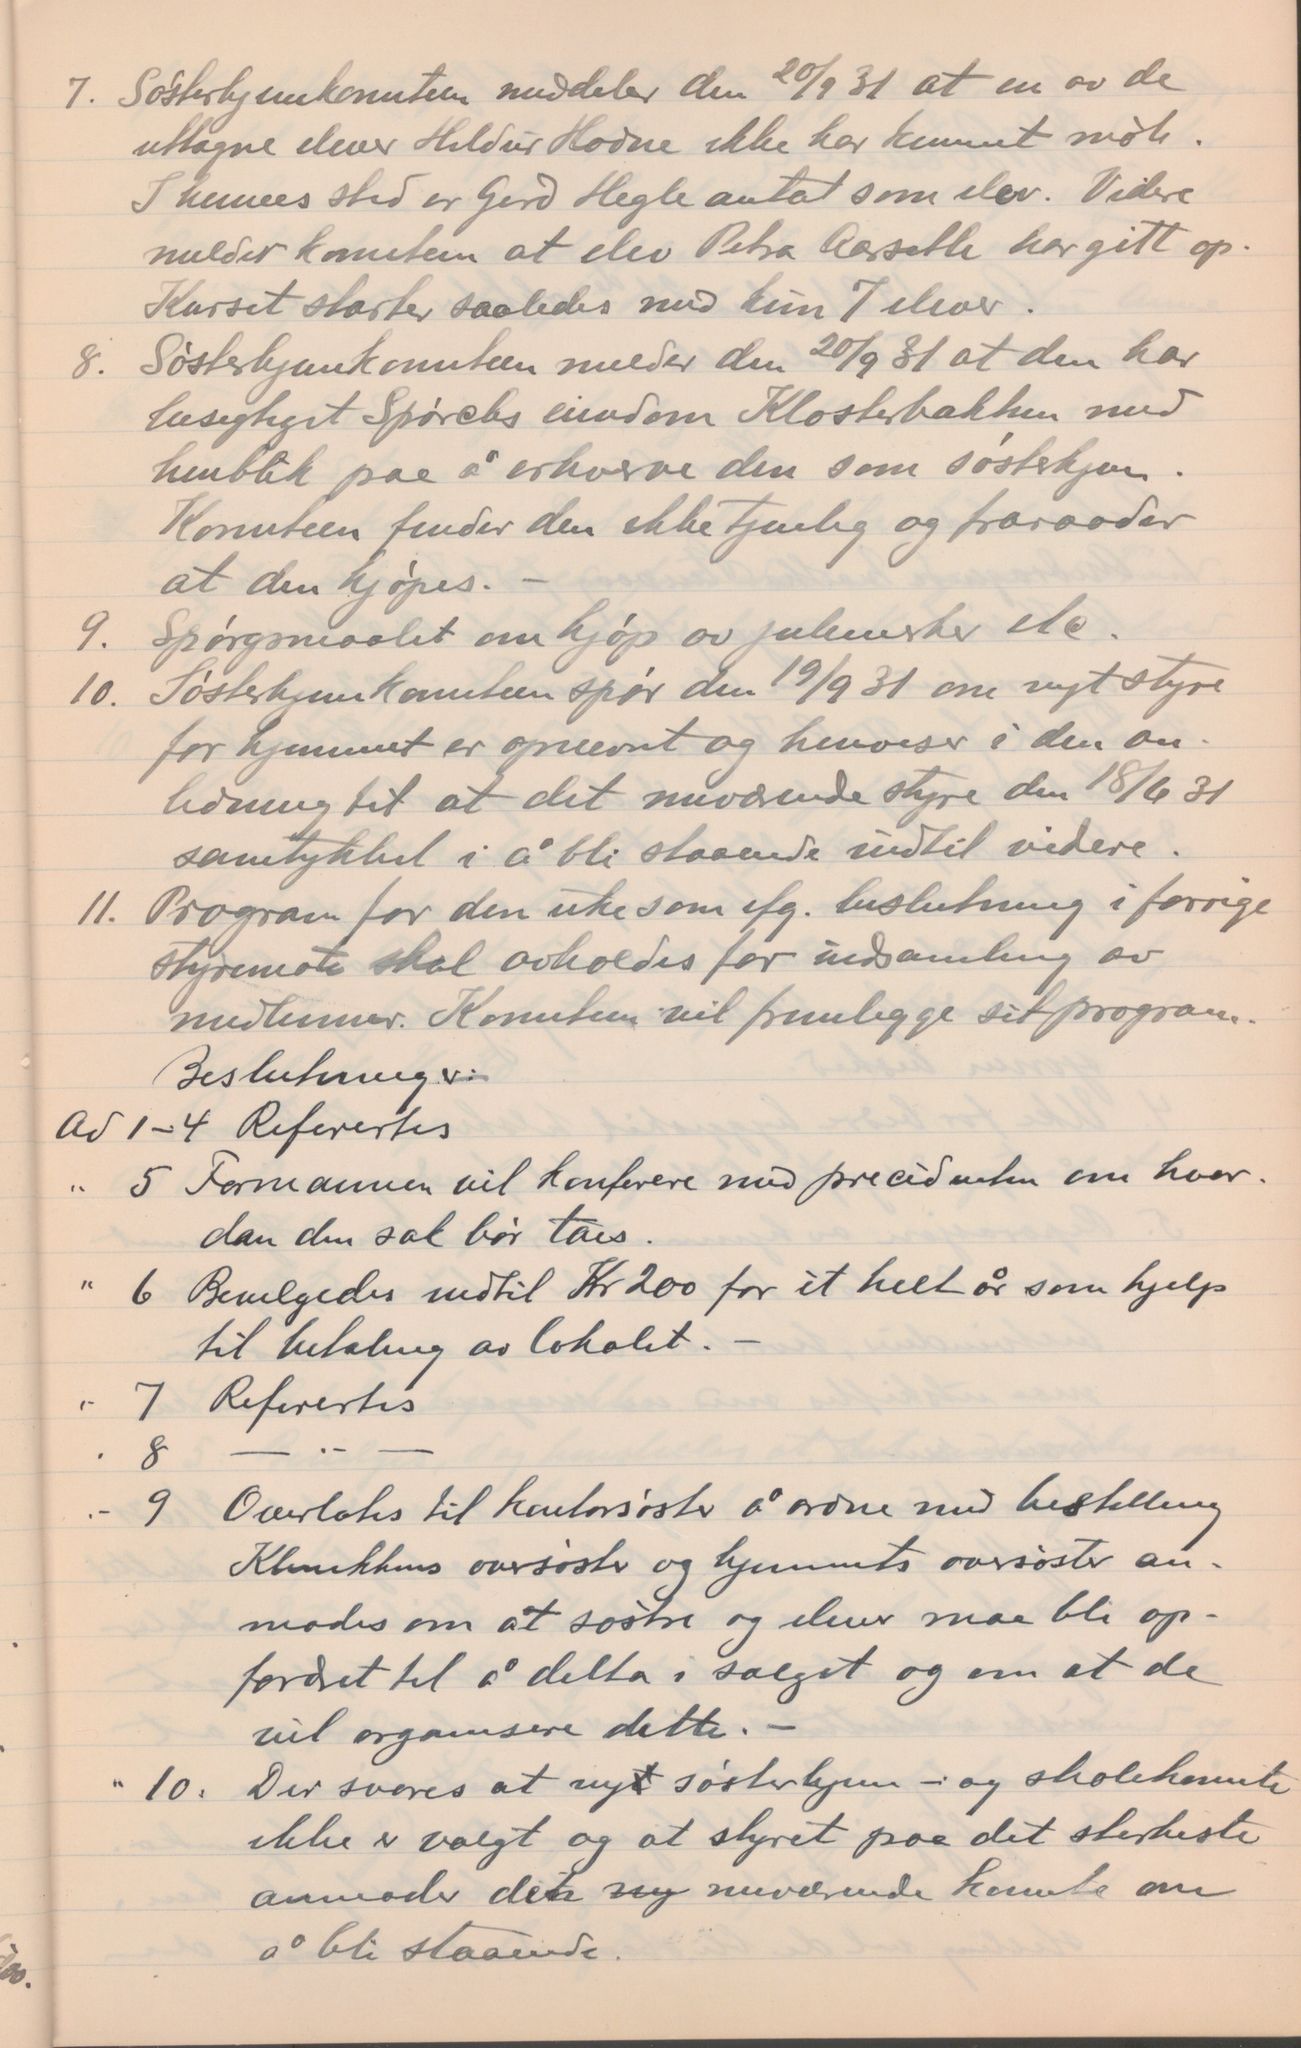 7. Søsterhjemkomiteen meddeler den 20/9 31 at en av de
uttagne elever Hildur Hodne ikke har kunnet møte.
I hennes sted er Gerd Hegle antat som elev. Videre
melder komiteen at elev Petra Aarseth har gitt op.
Kurset starter saaledes med kun 7 elever.
8. Søsterhjemkomiteen melder den 20/9 31 at den har
besigtiget Spørcks eiendom Klosterbakken med
henblik paa å erhverve den som søsterhjem.
Komiteen finder den ikke tjenlig og fraraader
at den kjøpes. –
9. Spørgsmaalet om kjøp av julemerker etc.
10. Søsterhjemkomiteen spør den 19/9 31 om nyt styre
for hjemmet er opnevnt og henviser i den an-
ledning til at det nuværende styre den 18/6 31
samtykket i å bli staaende indtil videre.
11. Program for den uke som ifg. beslutning i forrige
styremøte skal avholdes for indsamling av
medlemmer. Komiteen vil fremlegge sit program.
Beslutninger:
Ad 1–4 Refereertes
" 5 Formannen vil konferere med presidenten om hvor-
dan den sak bør taes.
" 6 Bevilgedes indtil Kr 200 for et helt år som hjelp
til betaling av lokalet. –
" 7 Refereertes
" 8 — " —
" 9 Overlates til kontorsøster å ordne med bestilling
Klinikkens oversøster og hjemmets oversøster an-
modes om at søstre og elever maa bli op-
fordret til å delta i salget og om at de
vil organisere dette. –
" 10. Der svares at nyt søsterhjem – og skolekomite
ikke er valgt og at styret paa det sterkeste
anmoder den ny nuværende komite om
å bli staaende.